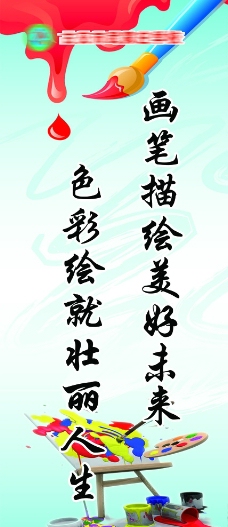 画笔描绘美好未来
色彩绘就壮丽人生